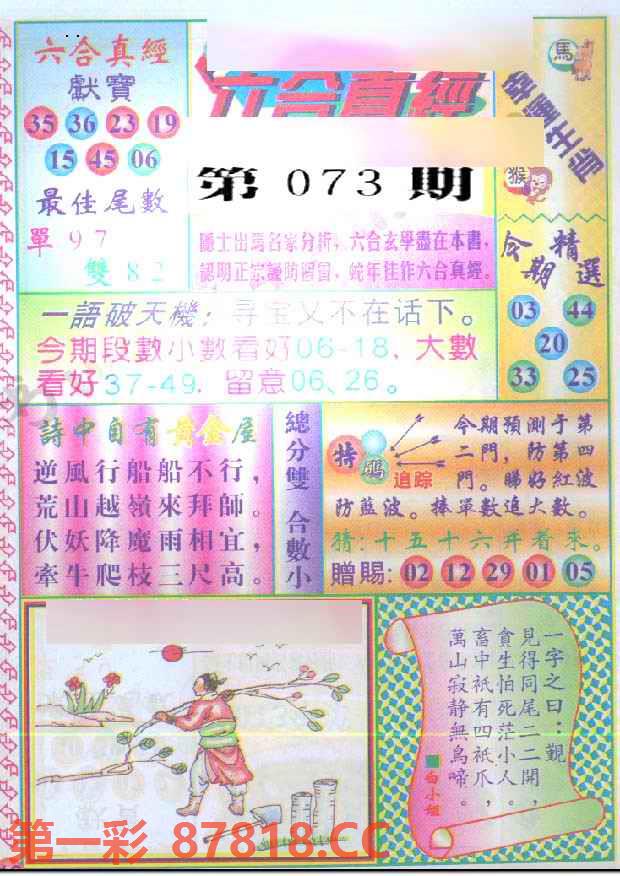 六合真經
獻寶
35 36 23 19
15 45 06
最佳尾數
單 9 7
雙 8 2
六合真經
第 073 期
馬
猴
今期精選
03 44
20
33 25
一語破天機：寻宝又不在话下。
今期段數小數看好06-18、大數
看好37-49．留意06、26。
詩中自有黄金屋
逆風行船船不行，
荒山越嶺來拜師。
伏妖降魔兩相宜，
牽牛爬枝三尺高。
總分雙 合數小
特碼
追踪
今期預測于第
二門，防第四
門。睇好紅波
防藍波。捧單數追大數。
猜：十五十六年看來。
贈賜：02 12 29 01 05
一字之曰：觀
見得同尾二二開，
貪生怕死茫小人。
畜中祇有四祇爪，
萬山寂静無鳥啼。
白小姐
第一彩 87818.CC